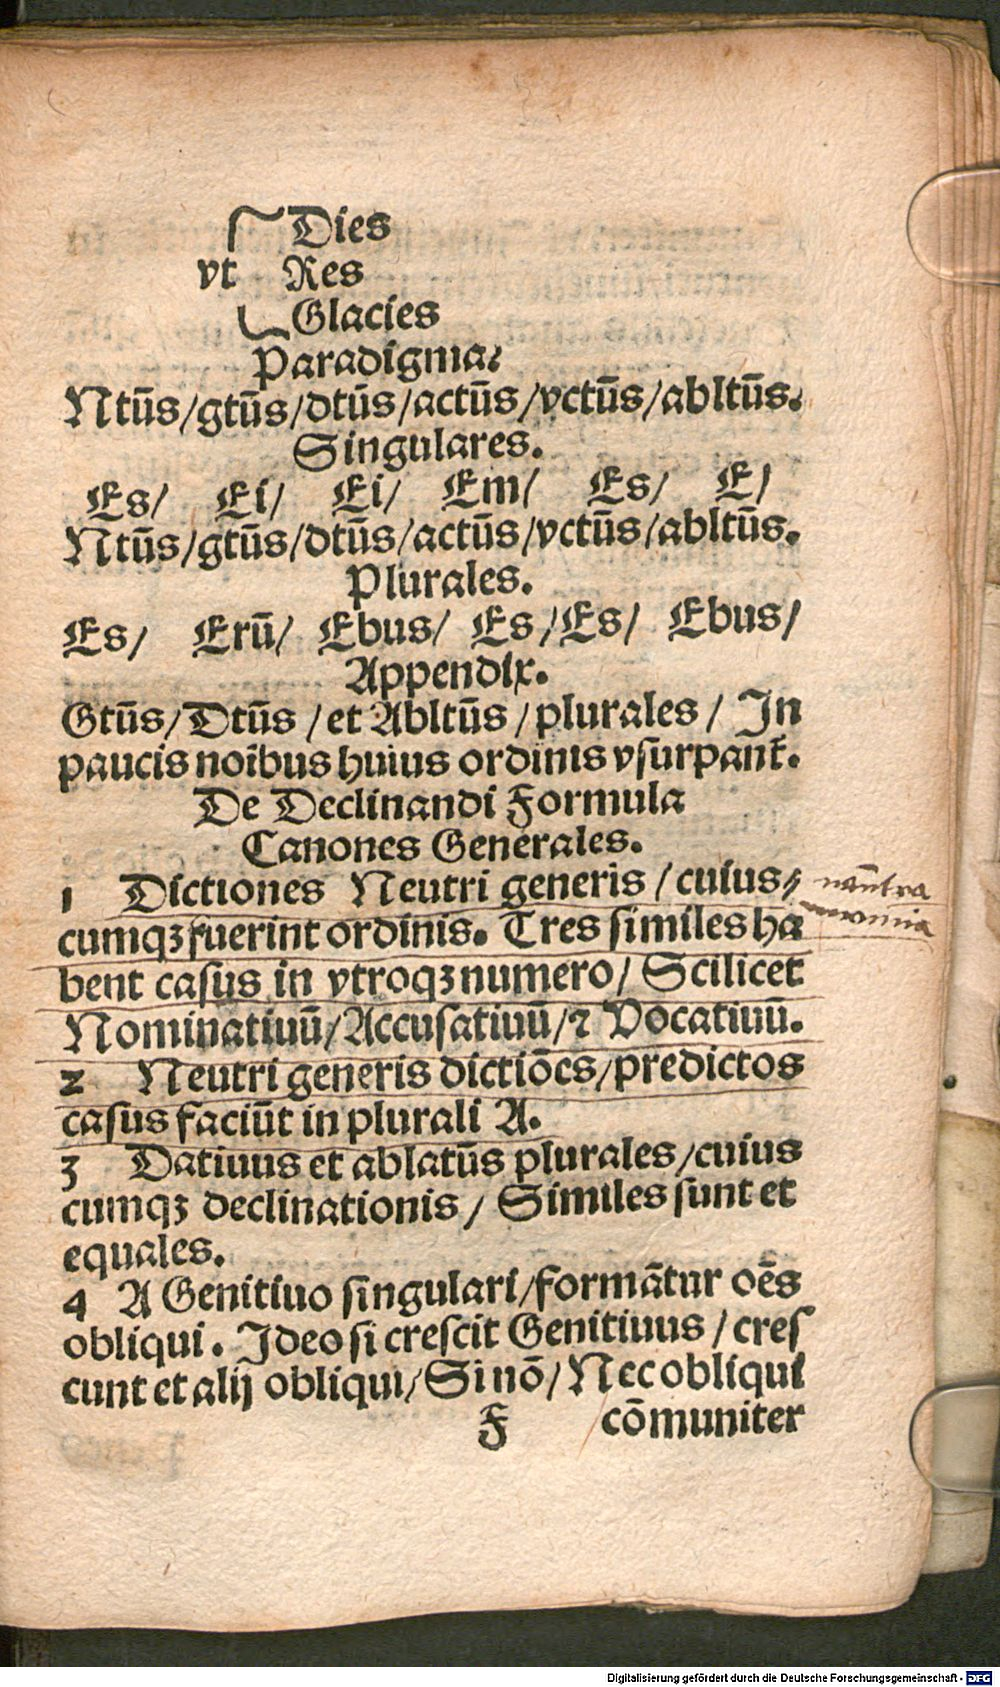 Dies
vt Res
Glacies
Paradigma.
Ntūs/gtūs/dtūs/actūs/vctūs/abltūs.
Singulares.
Es/ Ei/ Ei/ Em/ Es/ E/
Ntūs/gtūs/dtūs/actūs/vctūs/abltūs.
Plurales.
Es/ Erū/ Ebus/ Es/Es/ Ebus/
Appendix.
Gtūs/Dtūs/et Abltūs/plurales/ In
paucis noībus huius ordinis vſurpant̄.
De Declinandi Formula
Canones Generales.
1 Dictiones Neutri generis/cuius⸗
cumqꝫ fuerint ordinis. Tres ſimiles ha
bent caſus in vtroqꝫ numero/ Scilicet
Nominatiuū/Accuſatiuū/⁊ Vocatiuū.
2 Neutri generis dictiōes/predictos
caſus faciūt in plurali A.
3 Datiuus et ablatūs plurales/cuius
cumqꝫ declinationis/ Similes ſunt et
equales.
4 A Genitiuo ſingulari/formātur oēs
obliqui. Ideo ſi creſcit Genitiuus/creſ
cunt et alij obliqui/Si nō/Nec obliqui
F cōmuniter
Digitalisierung gefördert durch die Deutsche Forschungsgemeinschaft - DFG